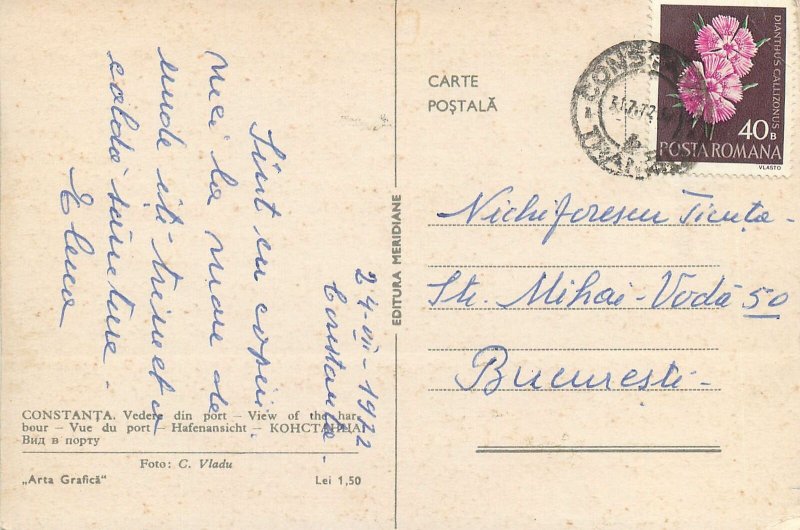 CARTE
POȘTALĂ
DIANTHUS CALLIZONUS
40 B
POSTA ROMANA
VLASTO
24-VII-1972
Constanța-
Sînt cu copiii
mei la mare de
unde iți trimet o
caldă sărutare -
Elena
EDITURA MERIDIANE
Nichiforescu Ticuța-
Str. Mihai-Vodă 50
București-
CONSTANȚA. Vedere din port – View of the har-
bour – Vue du port – Hafenansicht – КОНСТАНЦА.
Вид в порту
Foto: C. Vladu
„Arta Grafică“
Lei 1,50